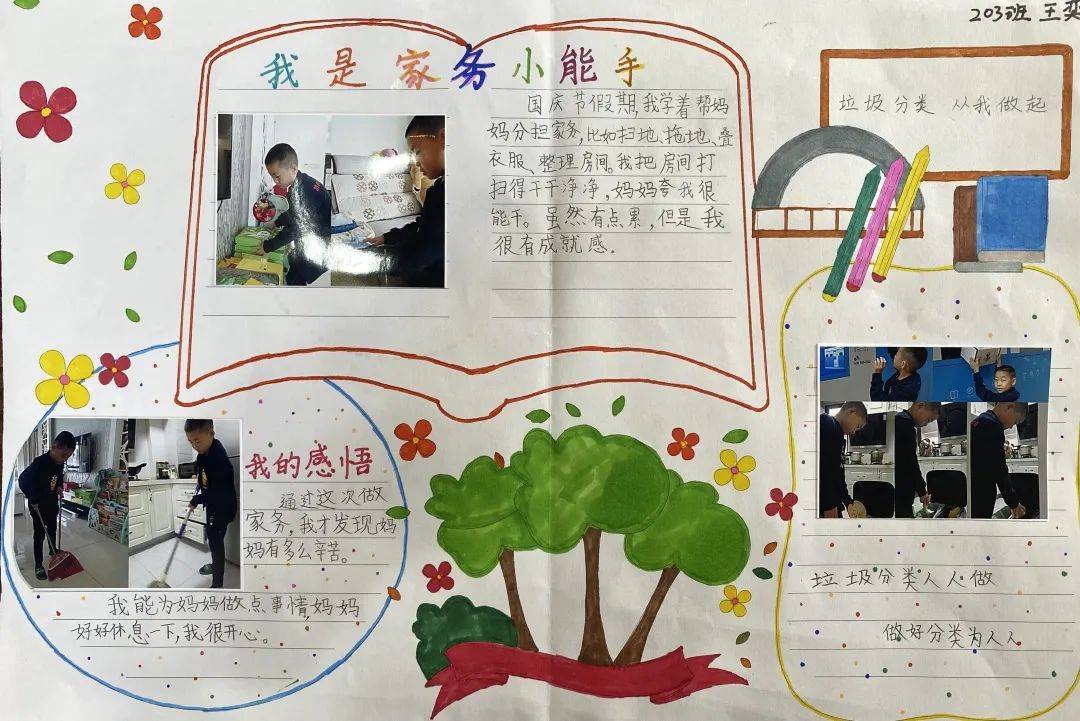 203班 王奕
我是家务小能手
国庆节假期,我学着帮妈
妈分担家务,比如扫地、拖地、叠
衣服、整理房间。我把房间打
扫得干干净净,妈妈夸我很
能干。虽然有点累,但是我
很有成就感.
垃圾分类 从我做起
我的感悟
通过这次做
家务,我才发现妈
妈有多么辛苦。
我能为妈妈做点事情,妈妈
好好休息一下,我很开心。
垃圾分类人人做
做好分类为人人